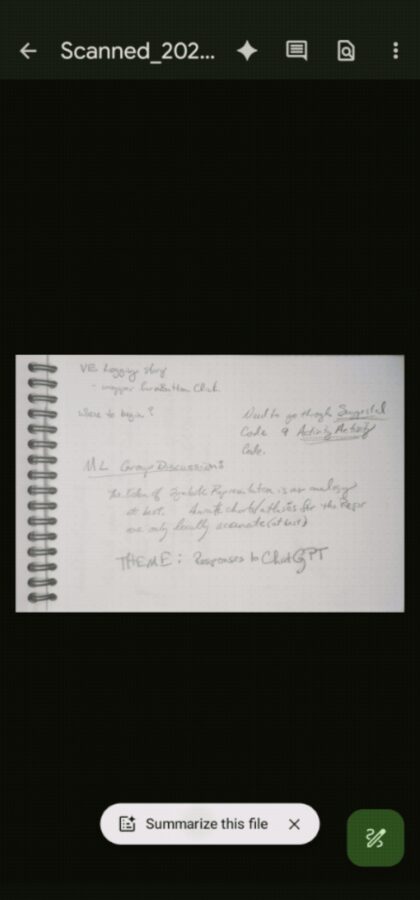 Scanned_202...
VE Logging story
- wrapper Click
where to begin?
Need to go through Suggested
Code & Activity Activity
Code.
ML Group Discussions
The Idea of Symbolic Representation is an analogy
at best. for the
are only locally accurate (at best)
THEME: Responses to ChatGPT
Summarize this file